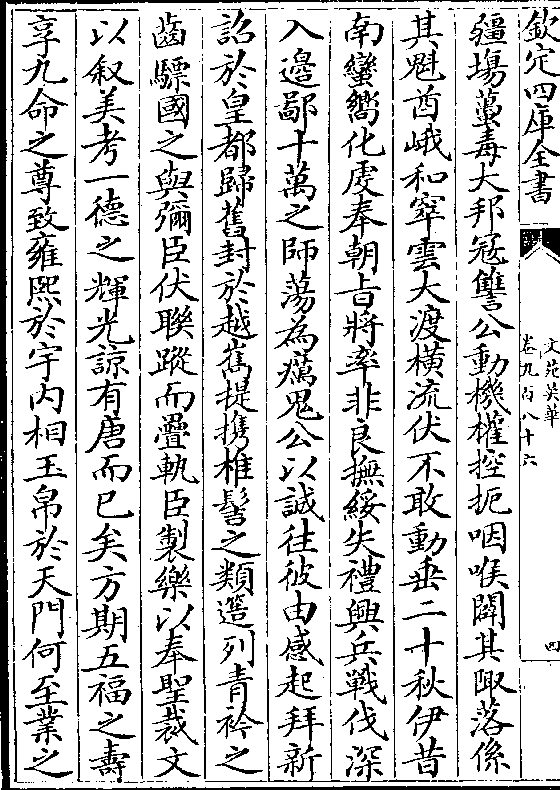 欽定四庫全書
文苑英華
卷九百八十六
四
疆場蠆毒大邦冦讐公動機權控扼咽喉闢其陬落係
其魁酋峨和窣雲大渡橫流伏不敢動垂二十秋伊昔
南蠻嚮化虔奉朝旨將率非良撫綏失禮興兵戰伐深
入邉鄙十萬之師蕩為癘鬼公以誠往彼由感起拜新
詔於皇都歸舊封於越嶲提携椎髻之類簉列青衿之
齒驃國之與彌臣伏聯蹤而疊軌臣製樂以奉聖裁文
以叙美考一德之輝光諒有唐而已矣方期五福之壽
享九命之尊致雍熙於宇内相玉帛於天門何至業之